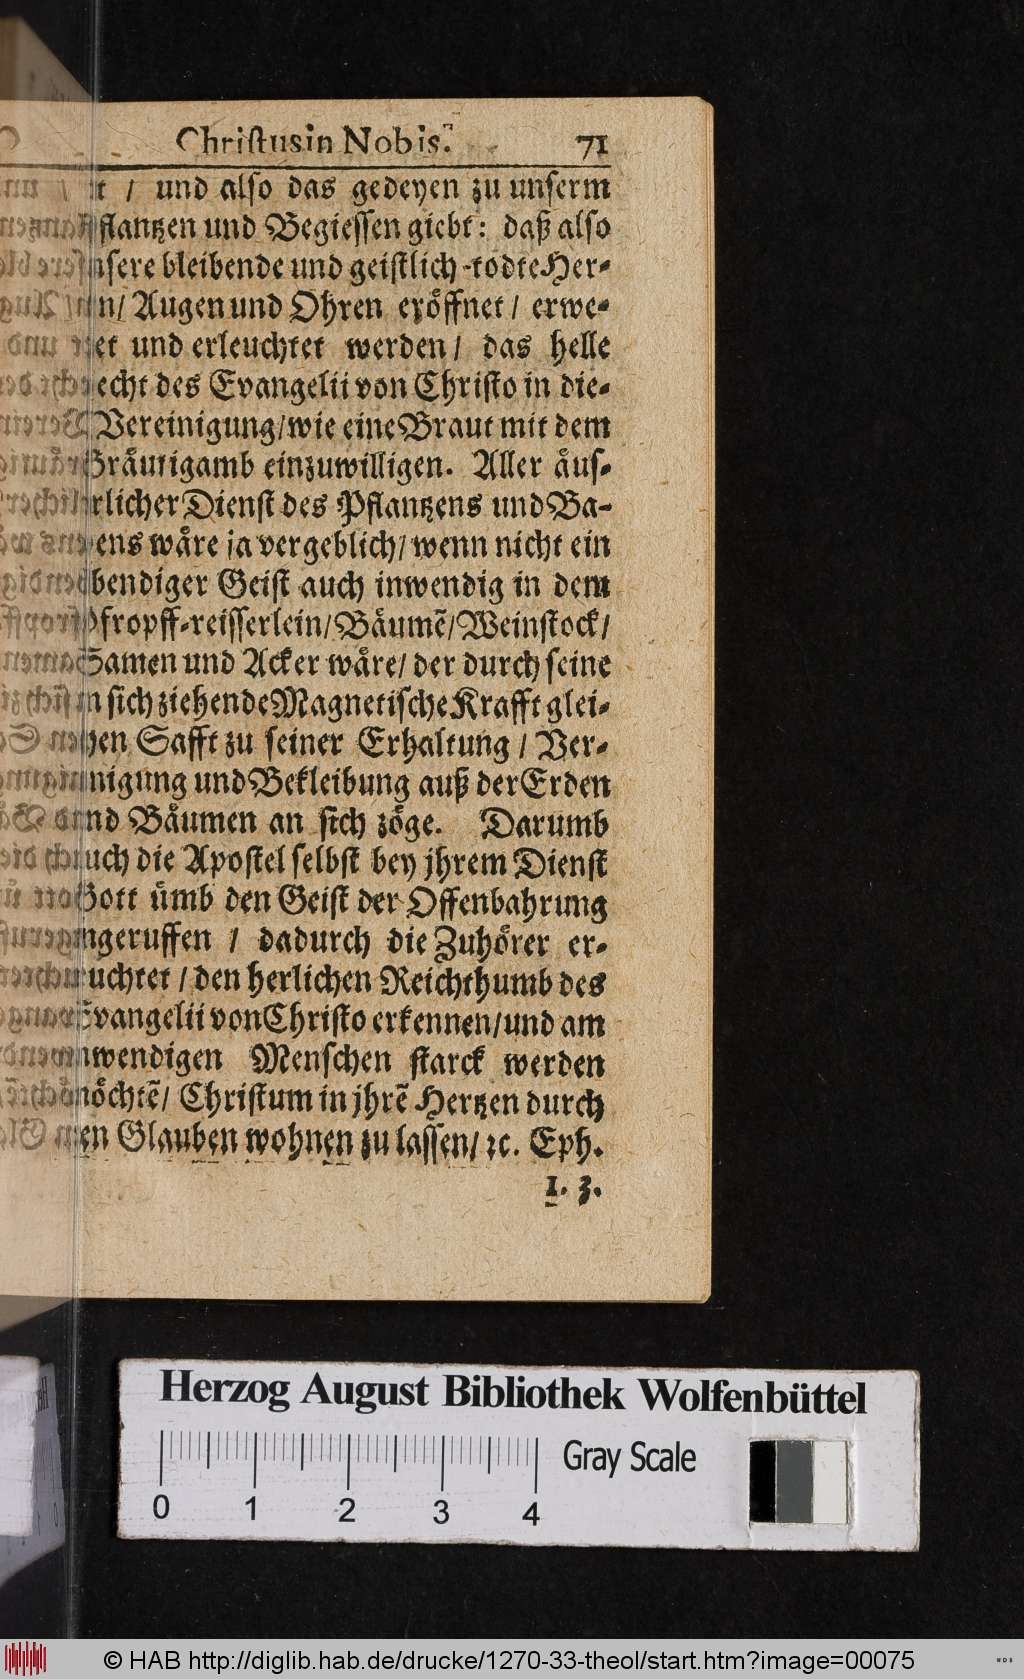 Christus in Nobis. 71
/ und also das gedeyen zu unserm
Pflantzen und Begiessen giebt: daß also
unsere bleibende und geistlich-todte Her-
/ Augen und Ohren eröffnet / erwe-
cket und erleuchtet werden / das helle
des Evangelii von Christo in die-
Vereinigung / wie eine Braut mit dem
Bräutigamb einzuwilligen. Aller äus-
serlicher Dienst des Pflantzens und Ba-
wens wåre ja vergeblich / wenn nicht ein
lebendiger Geist auch inwendig in dem
Pfropff-reisserlein / Bäumē / Weinstock /
Samen und Acker wåre / der durch seine
in sich ziehende Magnetische Krafft glei-
chen Safft zu seiner Erhaltung / Ver-
einigung und Bekleibung auß der Erden
und Bäumen an sich zöge. Darumb
auch die Apostel selbst bey jhrem Dienst
Gott ümb den Geist der Offenbahrung
angeruffen / dadurch die Zuhörer er-
leuchtet / den herlichen Reichthumb des
Evangelii von Christo erkennen / und am
inwendigen Menschen starck werden
möchtē / Christum in jhrē Hertzen durch
den Glauben wohnen zu lassen / ꝛc. Eph.
1. 3.
Herzog August Bibliothek Wolfenbüttel
Gray Scale
0 1 2 3 4
© HAB http://diglib.hab.de/drucke/1270-33-theol/start.htm?image=00075